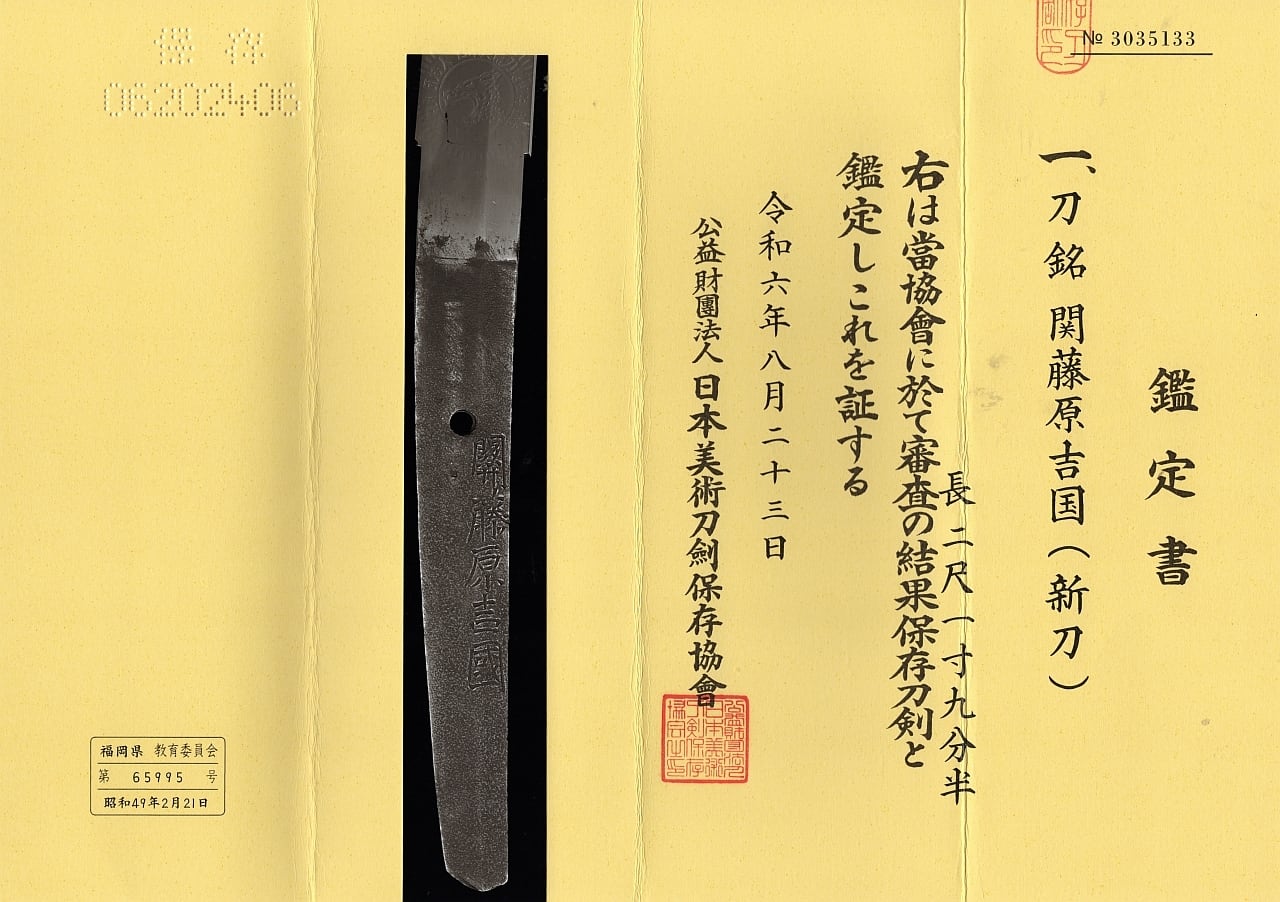 № 3035133
鑑定書
一、刀 銘 関藤原吉国(新刀)
長 二尺一寸九分半
右は當協會に於て審査の結果保存刀剣と
鑑定しこれを証する
令和六年八月二十三日
公益財團法人 日本美術刀劍保存協會
關藤原吉國
保存
06202406
福岡県 教育委員会
第 65995 号
昭和49年2月21日